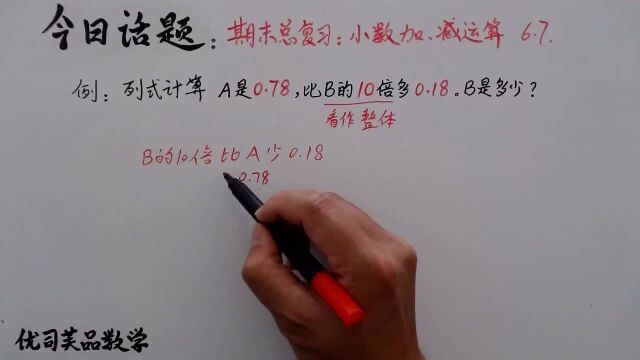 今日话题：期末总复习：小数加、减运算 6.7.
例：列式计算 A是0.78，比B的10倍多0.18。B是多少？
看作整体
B的10倍比A少0.18
0.78
优司芙品数学